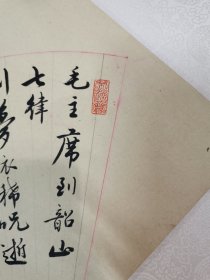 毛主席到韶山
七律
别梦依稀咒逝